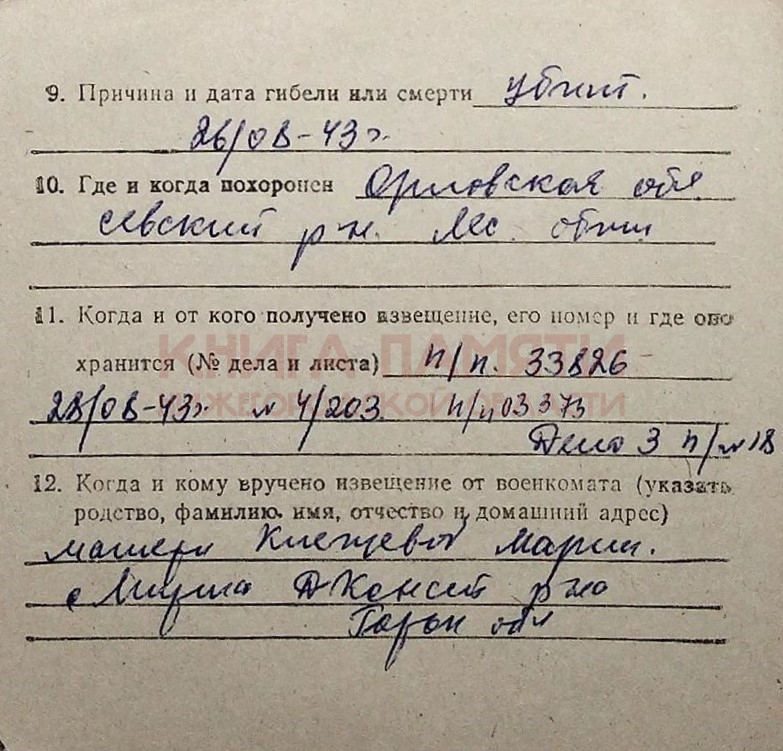 9. Причина и дата гибели или смерти убит.
26/08-43г.
10. Где и когда похоронен Орловская обл
Севский р-н. Лес.
11. Когда и от кого получено извещение, его номер и где оно
КНИГА ПАМЯТИ
хранится (№ дела и листа) п/п. 33826
НИЖЕГОРОДСКОЙ ОБЛАСТИ
28/08-43г. № 4/203. п/п 03373
Дело 3 п/№18
12. Когда и кому вручено извещение от военкомата (указать
родство, фамилию, имя, отчество и домашний адрес)
матери Марии.
р-на
Горьк обл